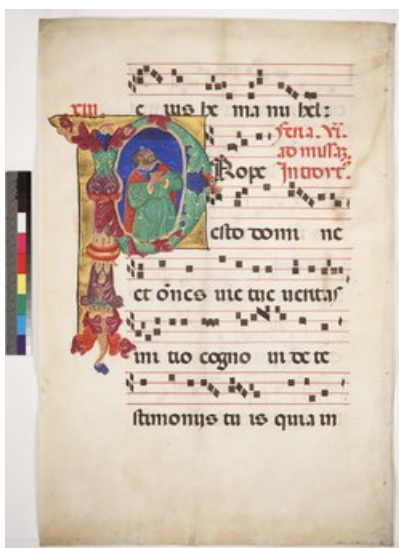 xiii.
e ius he ma nu hel:
feria. vi.
ad missaz
Introit.
Rope
esto domi ne
et oēs uie tue ueritas
ini tio cogno ui de te
stimonijs tu is quia in